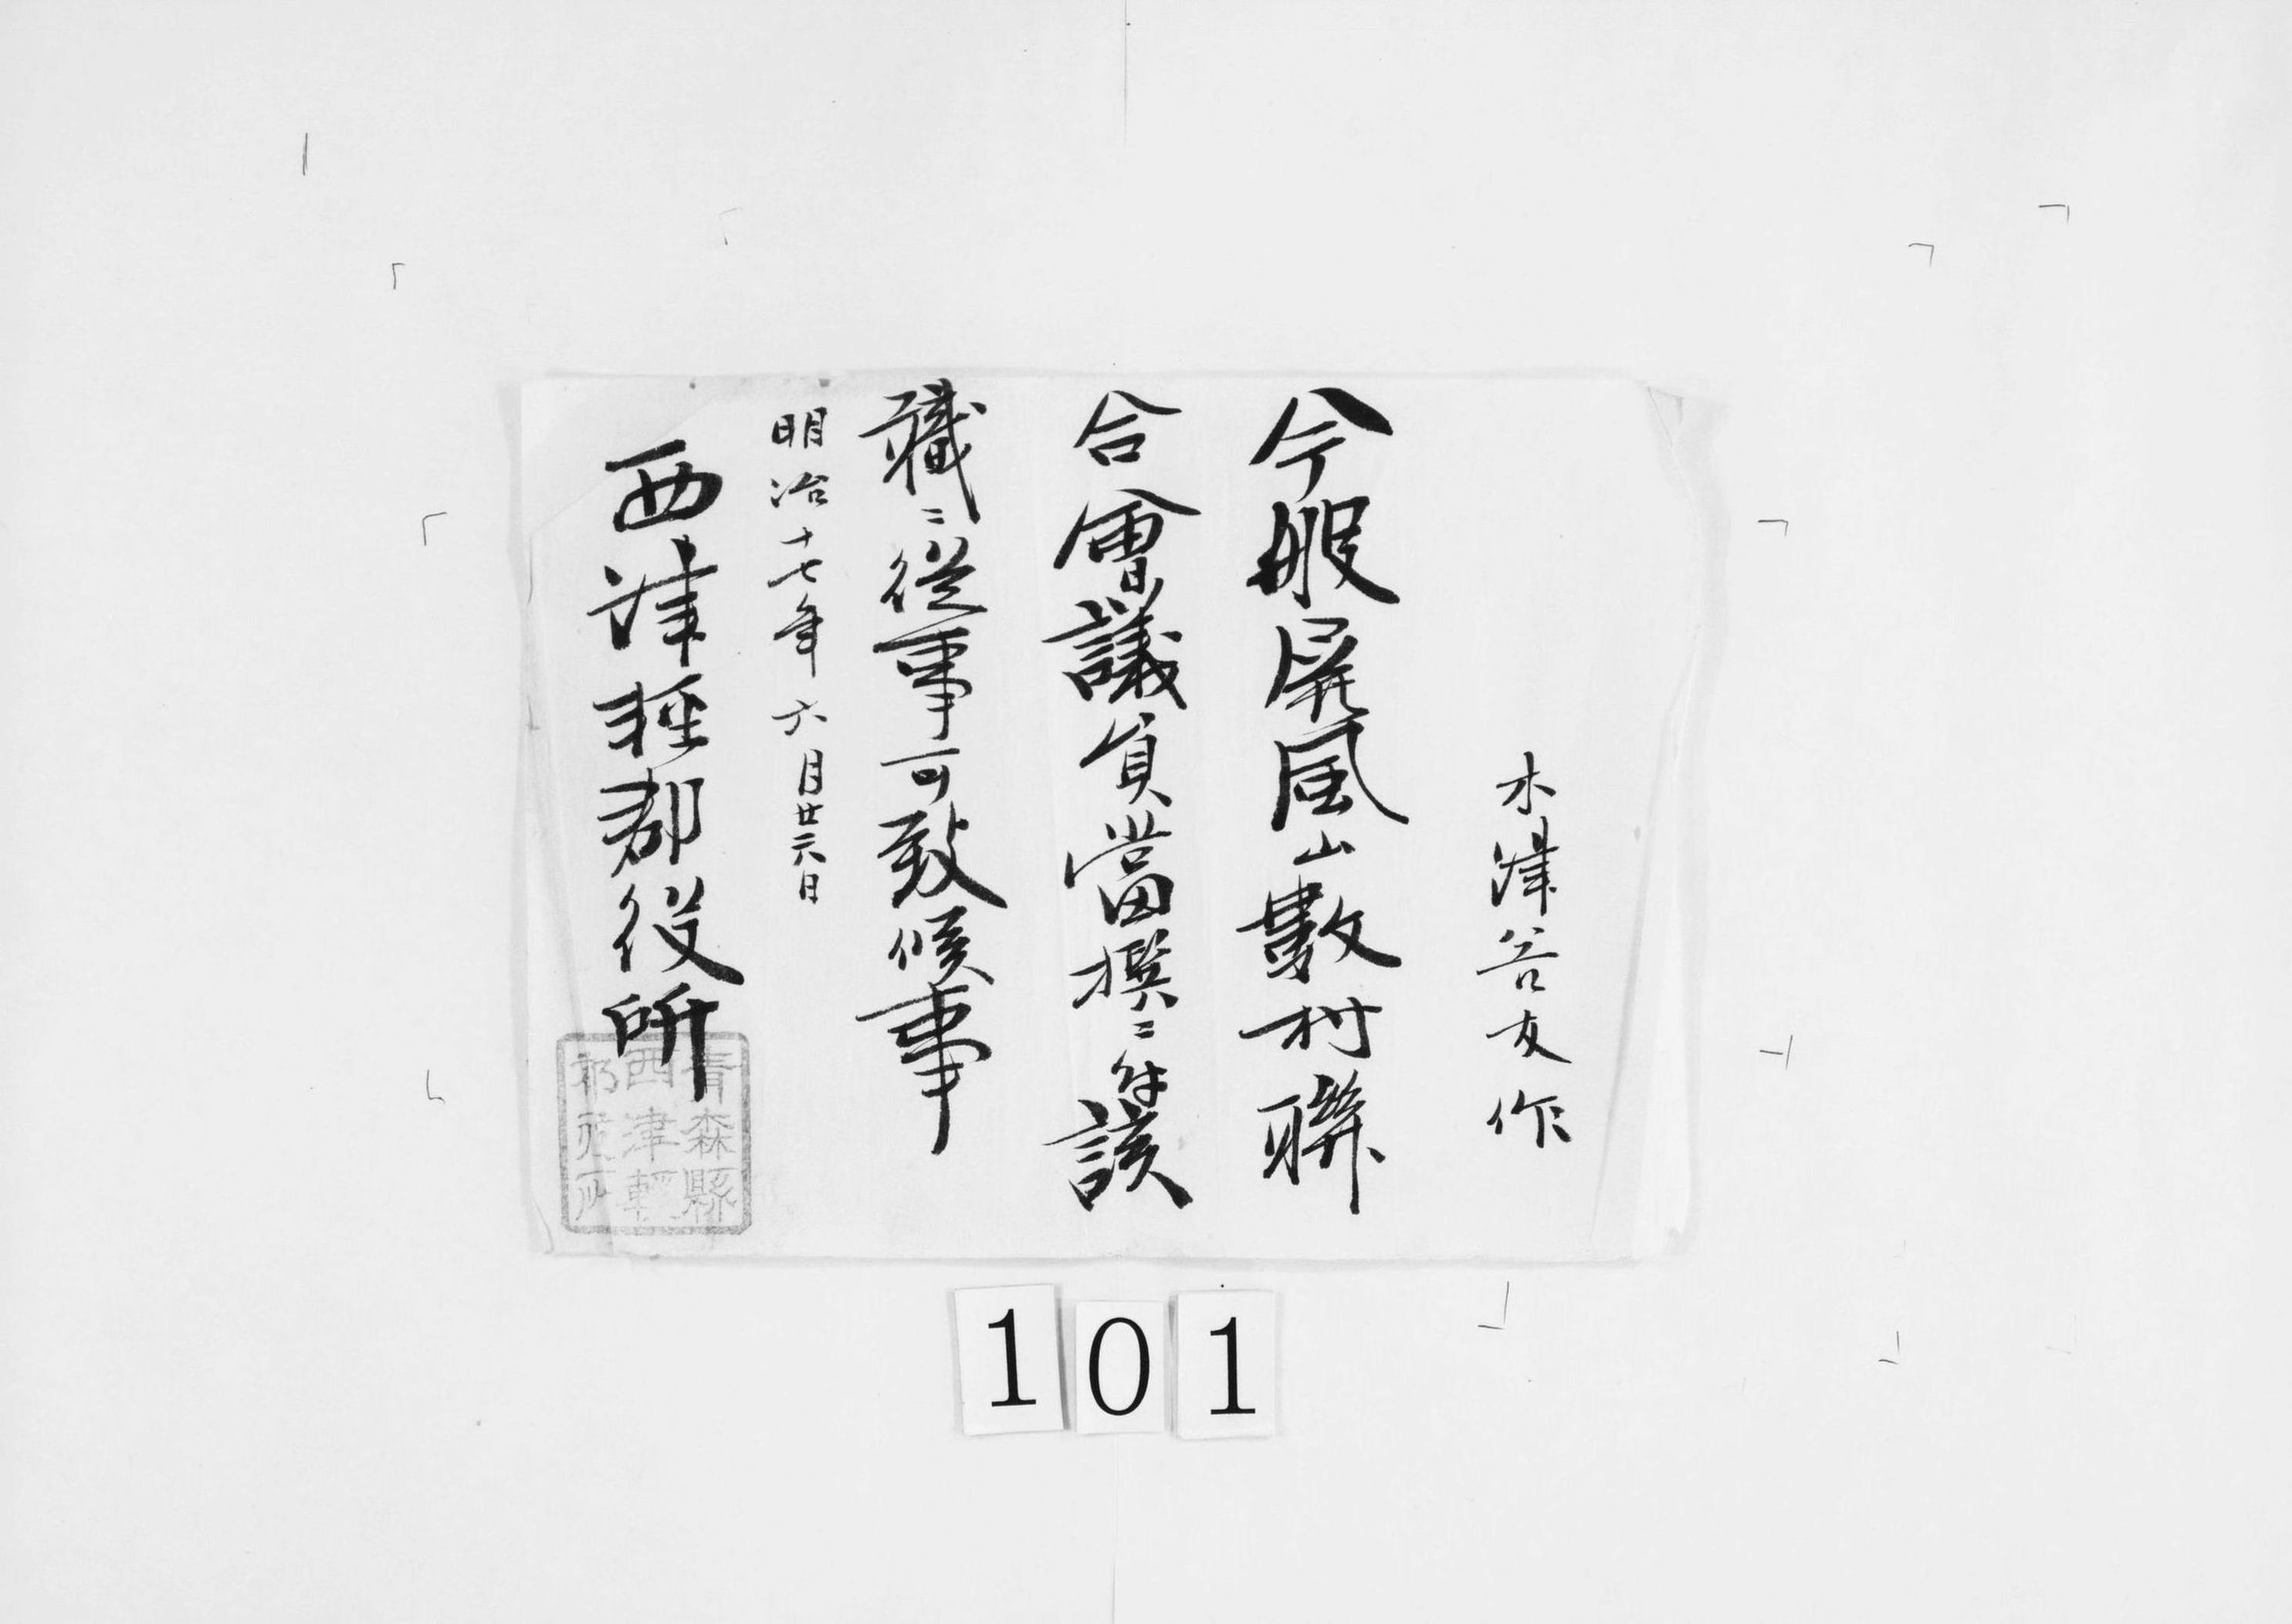 木津谷友作
今般屏風山數村聯
合會議員當撰ニ付該
職ニ從事可致候事
明治十七年六月廿六日
西津軽郡役所
青森縣
西津輕
郡役所
101